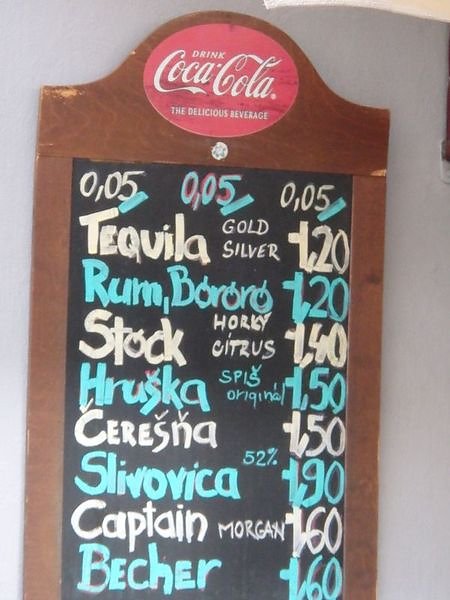 DRINK
Coca-Cola
THE DELICIOUS BEVERAGE
0,05 0,05 0,05
Tequila GOLD SILVER 1,20
Rum, Bororo 1,20
Stock HORKÝ CITRUS 1,40
Hruška SPIŠ originál 1,50
Čerešňa 1,50
Slivovica 52% 1,90
Captain MORGAN 1,60
Becher 1,60